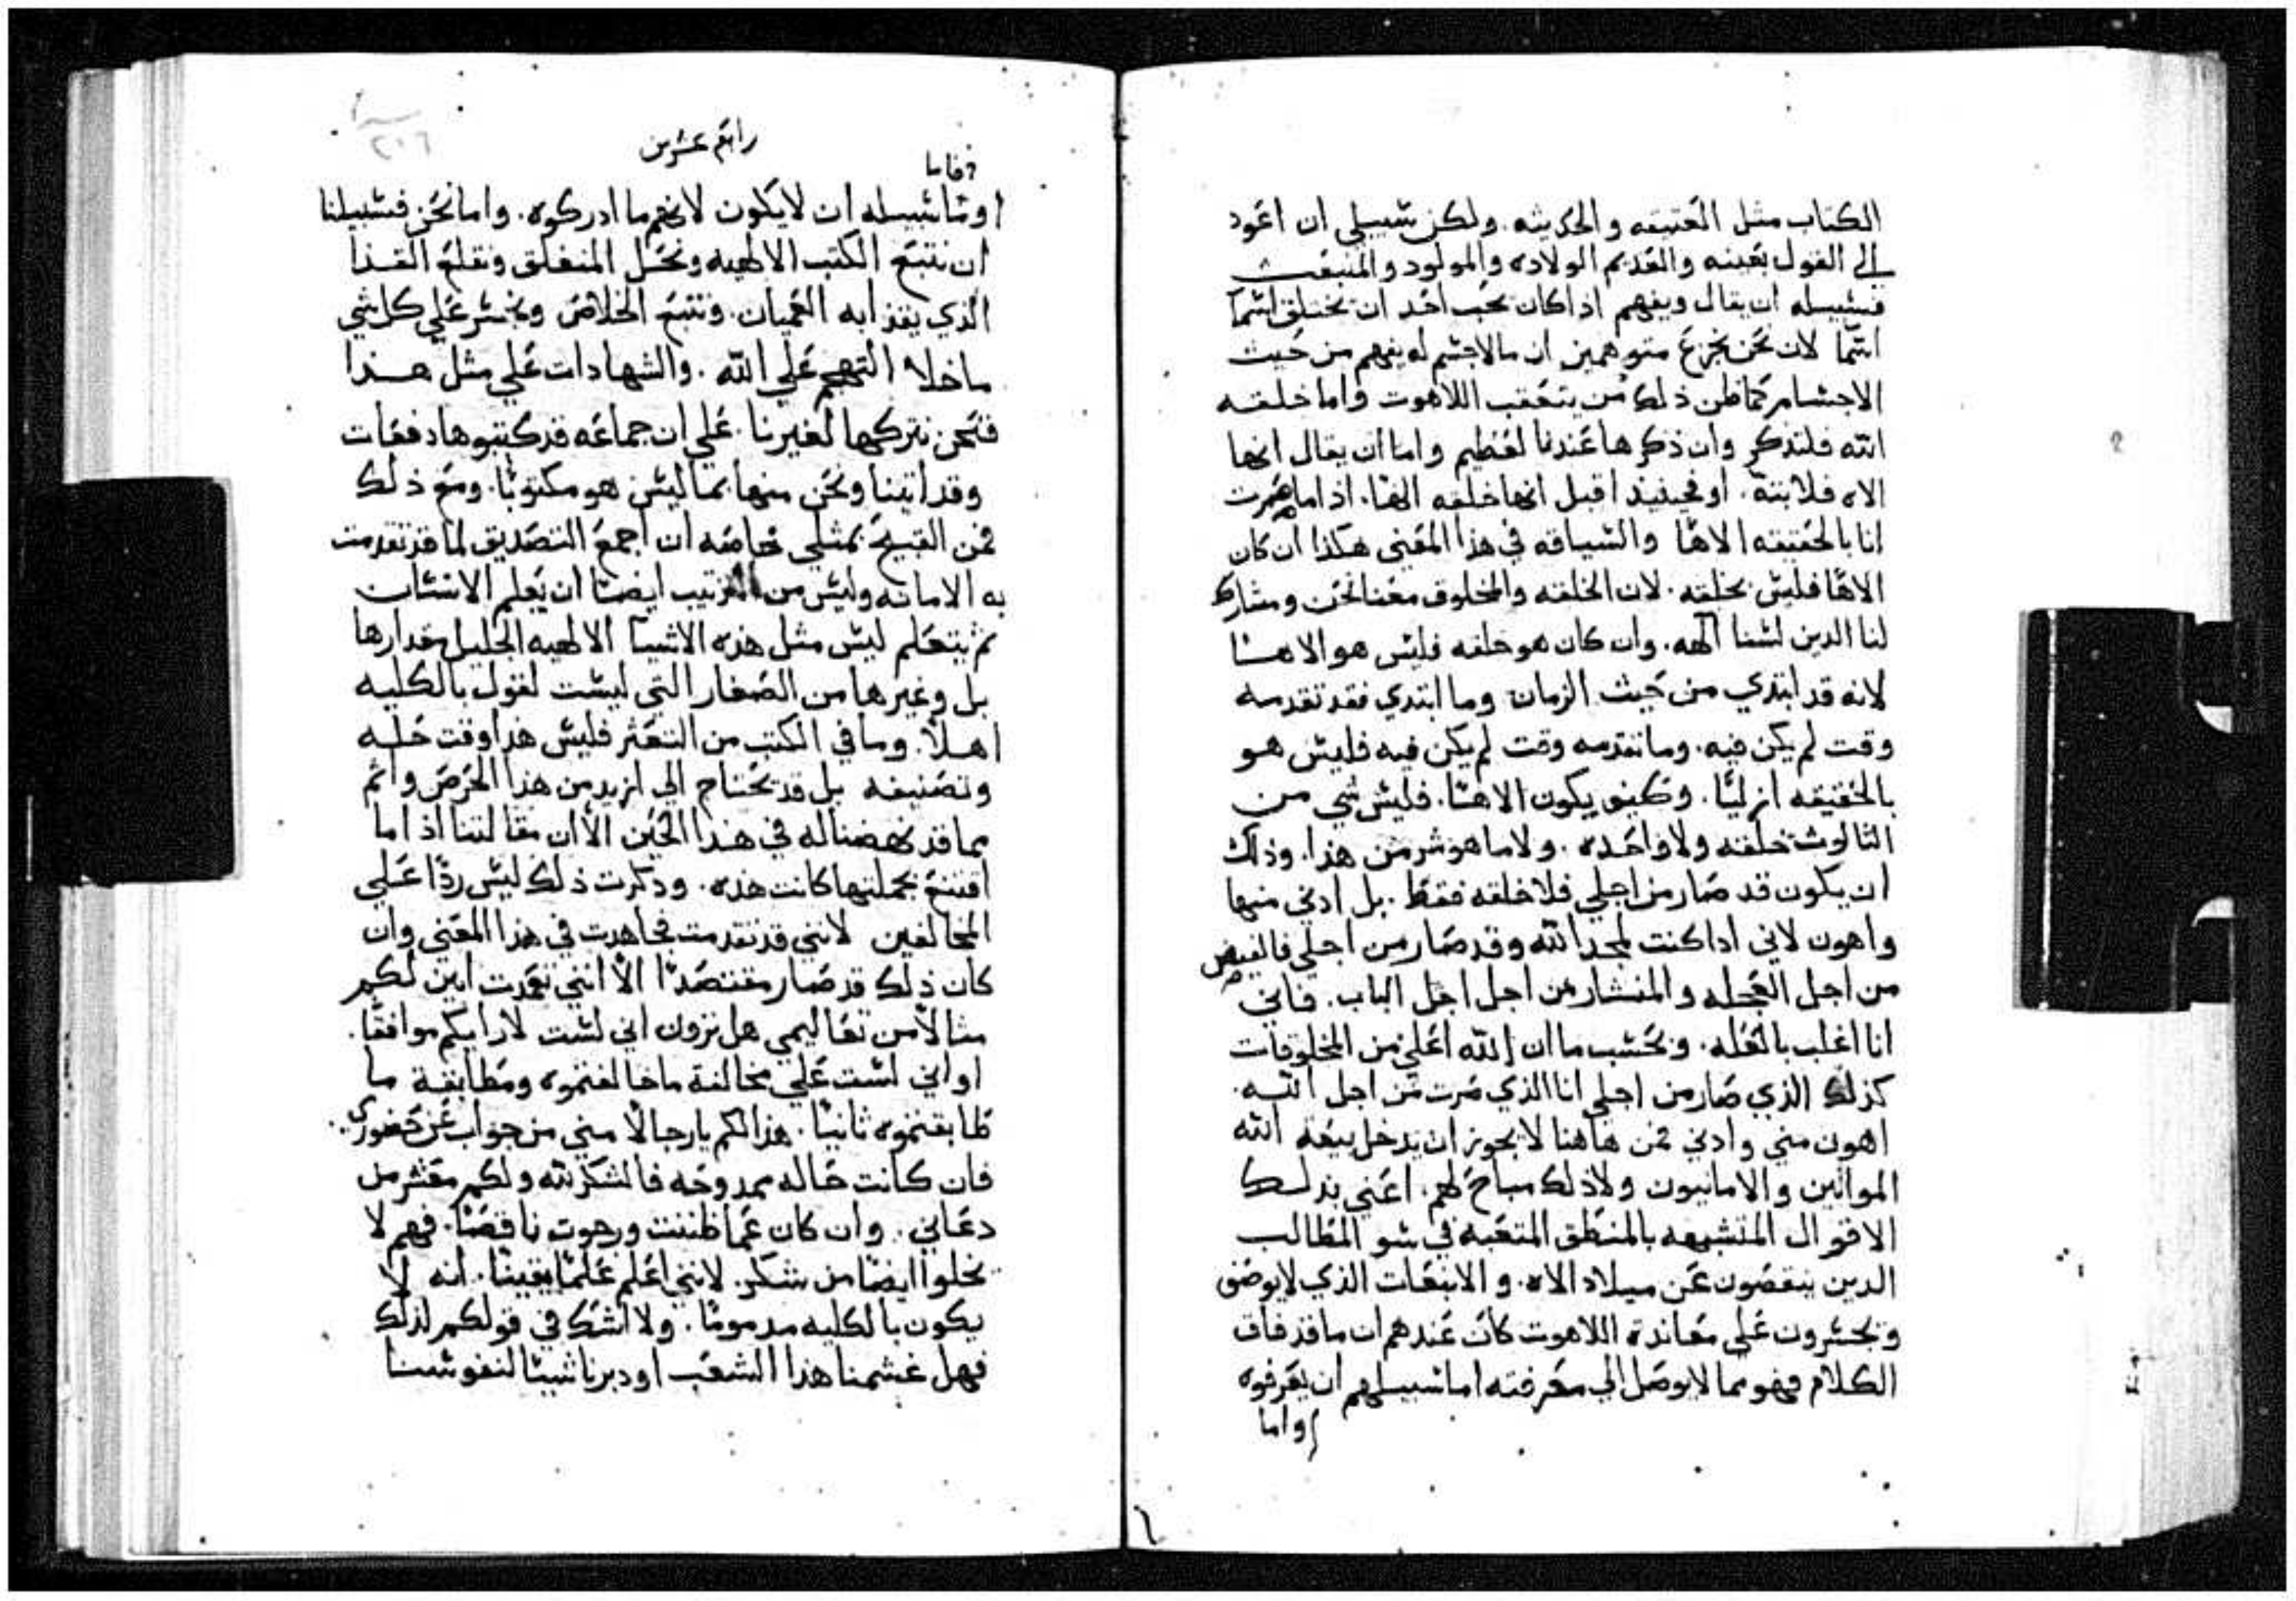 الكتاب مثل العتيقه والحديثه. ولكن سبيلي ان اعود
الي القول بعينه والقديم الولاده والمولود والمنبعث
فسبيله ان يقال ويفهم اذا كان يحب احد ان يختلق اسما
اسما لان نحن نجزع متوهمين ان مالاجسم له يفهم من حيث
الاجسام كما ظن ذلك من يتعقب اللاهوت واما خلقه
الله فلتذكر وان ذكرها عندنا لعظيم واما ان يقال انها
الاه فلابتة. او فحينيذ اقبل انها خلقه الها. اذا ما صرت
انا بالحقيقه الاها والسياقه في هذا المعني هكذا ان كان
الاها فليس بخلقه. لان الخلقه والمخلوق معنا نحن ومشارك
لنا الدين لسنا آلهه. وان كان هو خلقه فليس هو الاها
لانه قد ابتدي من حيث الزمان وما ابتدي فقد تقدمه
وقت لم يكن فيه. وما تقدمه وقت لم يكن فيه فليس هو
بالحقيقه ازليا. وكيف يكون الاها. فليس شي من
الثالوث خلقه ولا واحده. ولا ما هو شر من هذا. وذلك
ان يكون قد صار من اجلي فلا خلقه فقط. بل ادني منها
واهون لاني اذا كنت لمجد الله وقد صار من اجلي فالقبض
من اجل العجله والمنشار من اجل اجل الباب. فاني
انا اغلب بالعله. وبحسب ما ان الله اعلي من المخلوقات
كذلك الذي صار من اجلي انا الذي صرت من اجل الله.
اهون مني وادني فمن هاهنا لا يجوز ان يدخل بيعة الله
الموابين والامانيون ولا ذلك مباح لهم. اعني بذلك
الاقوال المتشبهه بالمنطق المتعبه في سو المطالب
الدين ينقصون عن ميلاد الاه. والانبعاث الذي لا يوصف
ويجسرون علي معاندة اللاهوت كان عندهم ان ما قد فاق
الكلام فهو مما لا يوصل الي معرفته اما سبيلهم ان يعرفوه
واما
رابع عشرين
او ما سبيله ان لا يكون لانهم ما ادركوه. واما نحن فسبيلنا
ان نتبع الكتب الالهيه ونحل المنغلق ونقلع القذا
الذي يقذا به العميان. ونتبع الخلاص ونجسر علي كل شي
ما خلا التهجم علي الله. والشهادات علي مثل هذا
فنحن نتركها لغيرنا. علي ان جماعه قد كتبوها دفعات
وقد اتينا ونحن منها بما ليس هو مكتوبا. ومع ذلك
فمن القبيح بمثلي خاصه ان اجمع التصديق لما قد تقدمت
به الامانه وليس من الترتيب ايضا ان يعلم الانسان
ثم يتعلم ليس مثل هذه الاشيا الالهيه الجليل مقدارها
بل وغيرها من الصغار التي ليست لقول بالكليه
اهلا. وما في الكتب من التعثر فليس هذا وقت حله
وتصنيفه بل قد تحتاج الي ازيد من هذا الحرص واتم
مما قد نهضنا له في هذا الحين الا ان مقالتنا اذا ما
اقتنع بجملتها كانت هذه. وذكرت ذلك ليس ردا علي
المخالفين لانني قد تقدمت فجاهدت في هذا المعني وان
كان ذلك قد صار مقتصدا الا انني تعمدت ابين لكم
مثالا من تعاليمي هل ترون اني لست لارايكم موافقا.
او اني لست علي مخالفة ما خالفتموه ومطابقة ما
طابقتموه ثانيا. هذا لكم يا رجالا مني من جواب عن حضوري.
فان كانت حاله ممدوحه فالشكر لله ولكم معشر من
دعاني. وان كان عما ظننت ورجوت ناقصا. فهم لا
تخلوا ايضا من شكر. لانني اعلم علما يقينا. انه لا
يكون بالكليه مدموما. ولا اشك في قولكم لذلك
فهل غشمنا هذا الشعب او دبرنا شيا لنفوسنا